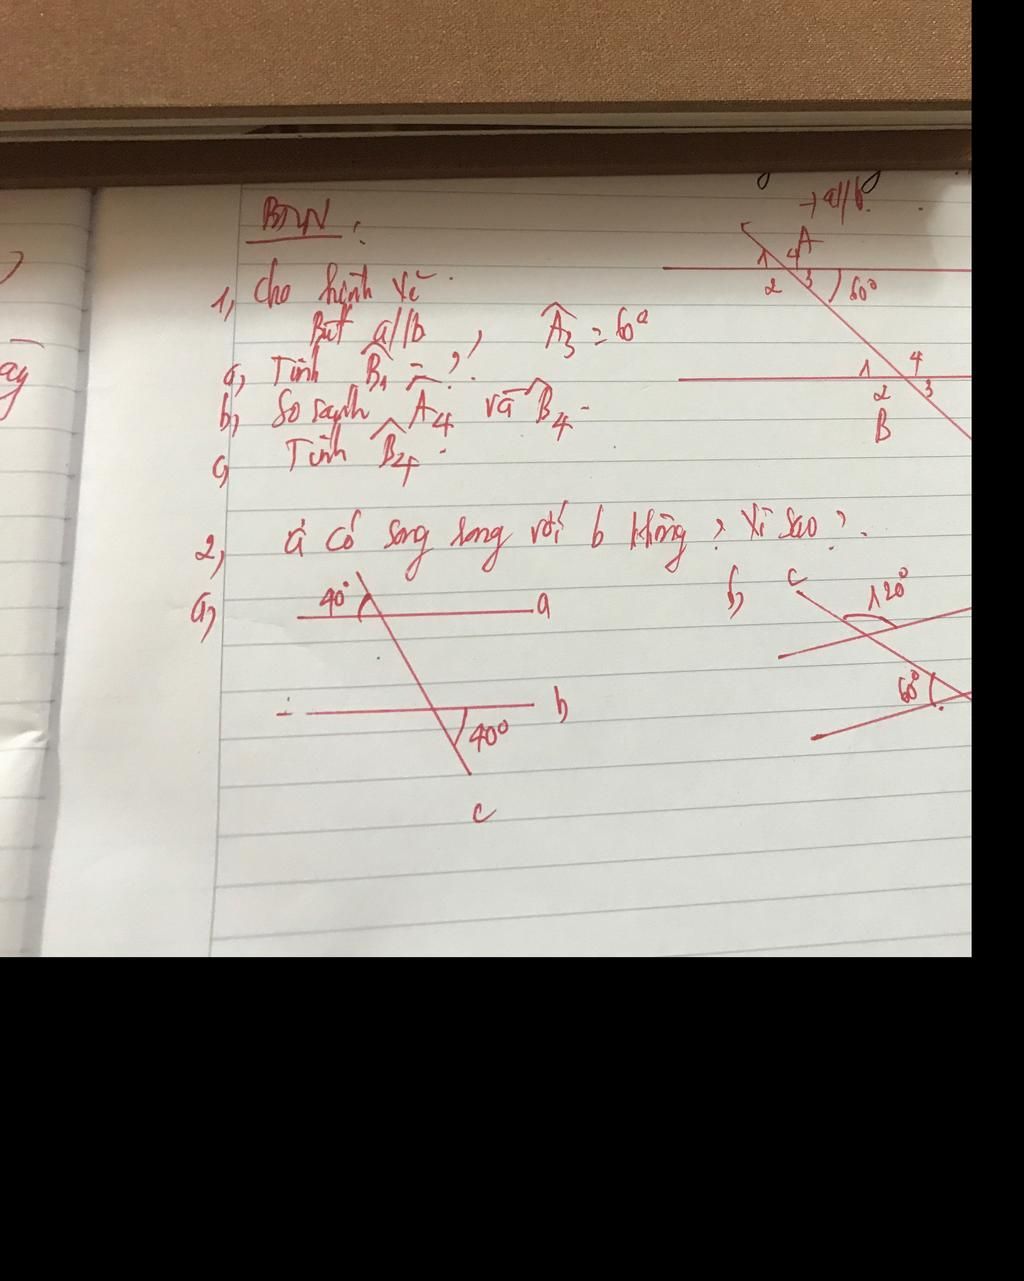 → a//b.
BTVN:
1, Cho hình vẽ.
Biết a//b, Â3 = 60°
a, Tính B̂1 = ?.
b, So sánh Â4 và B̂4.
c, Tính B̂4.
1 4 A
2 3 60°
1 4
2 3
B
2, a có song song với b không? Vì sao?.
a, 40° a
b
40°
c
b, c 120°
60°